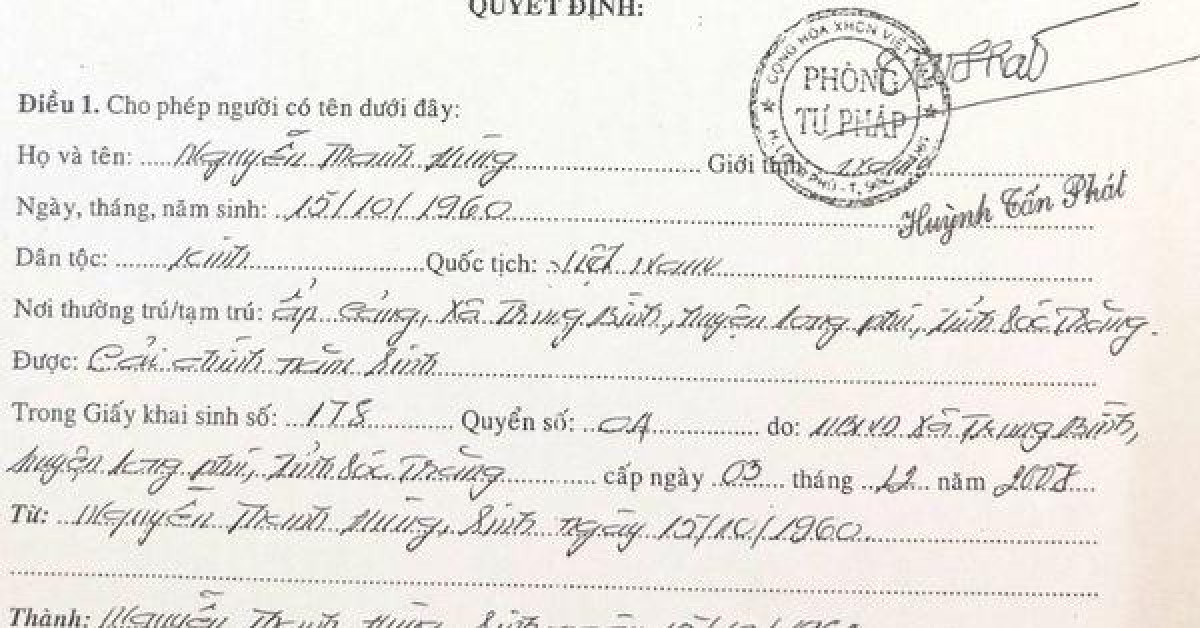 QUYẾT ĐỊNH:
CỘNG HÒA XHCN VIỆT
PHÒNG
TƯ PHÁP
Điều 1. Cho phép người có tên dưới đây:
Họ và tên: Nguyễn Thanh Hùng Giới tính: Nam
Huỳnh Tấn Phát
Ngày, tháng, năm sinh: 15/10/1960
Dân tộc: Kinh Quốc tịch: Việt Nam
Nơi thường trú/tạm trú: Ấp Cảng, Xã Trung Bình, huyện Long Phú, tỉnh Sóc Trăng.
Được: Cải chính năm sinh
Trong Giấy khai sinh số: 178 Quyển số: 01 do: UBND Xã Trung Bình,
huyện Long Phú, tỉnh Sóc Trăng cấp ngày 03 tháng 12 năm
Từ: Nguyễn Thanh Hùng, sinh ngày 15/10/1960.
Thành: Nguyễn Thanh Hùng sinh ngày